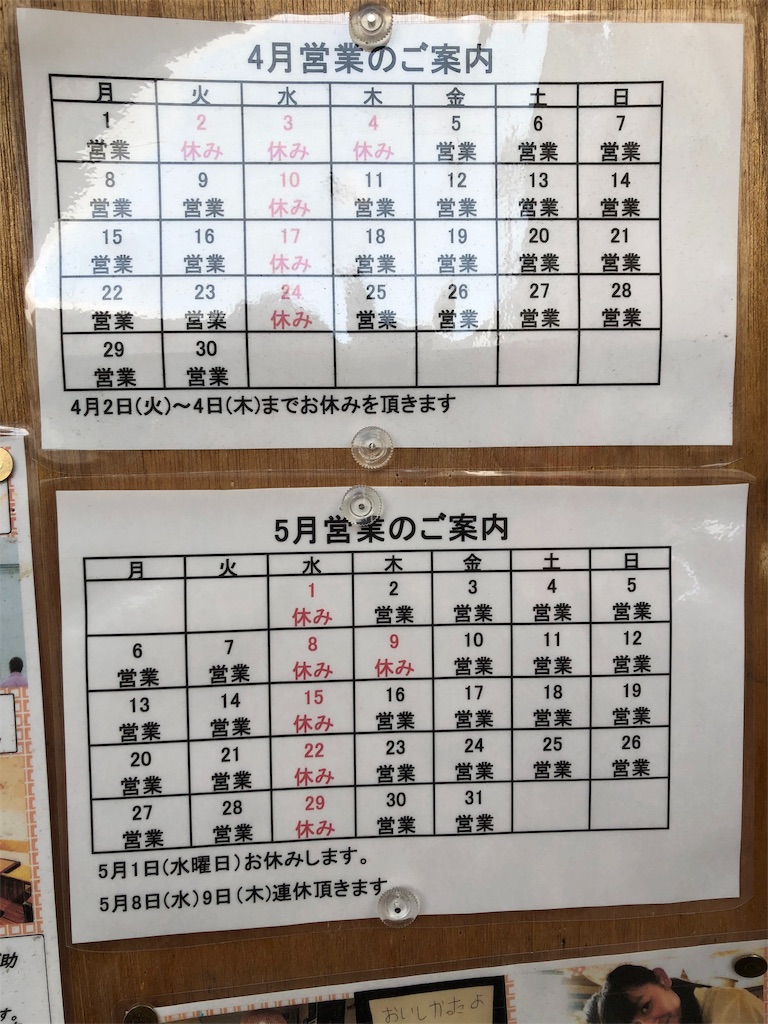 4月営業のご案内
月 火 水 木 金 土 日
1 2 3 4 5 6 7
営業 休み 休み 休み 営業 営業 営業
8 9 10 11 12 13 14
営業 営業 休み 営業 営業 営業 営業
15 16 17 18 19 20 21
営業 営業 休み 営業 営業 営業 営業
22 23 24 25 26 27 28
営業 営業 休み 営業 営業 営業 営業
29 30
営業 営業
4月2日(火)～4日(木)までお休みを頂きます
5月営業のご案内
月 火 水 木 金 土 日
1 2 3 4 5
休み 営業 営業 営業 営業
6 7 8 9 10 11 12
営業 営業 休み 休み 営業 営業 営業
13 14 15 16 17 18 19
営業 営業 休み 営業 営業 営業 営業
20 21 22 23 24 25 26
営業 営業 休み 営業 営業 営業 営業
27 28 29 30 31
営業 営業 休み 営業 営業
5月1日(水曜日)お休みします。
5月8日(水)9日(木)連休頂きます
助
す。
おいしかったよ